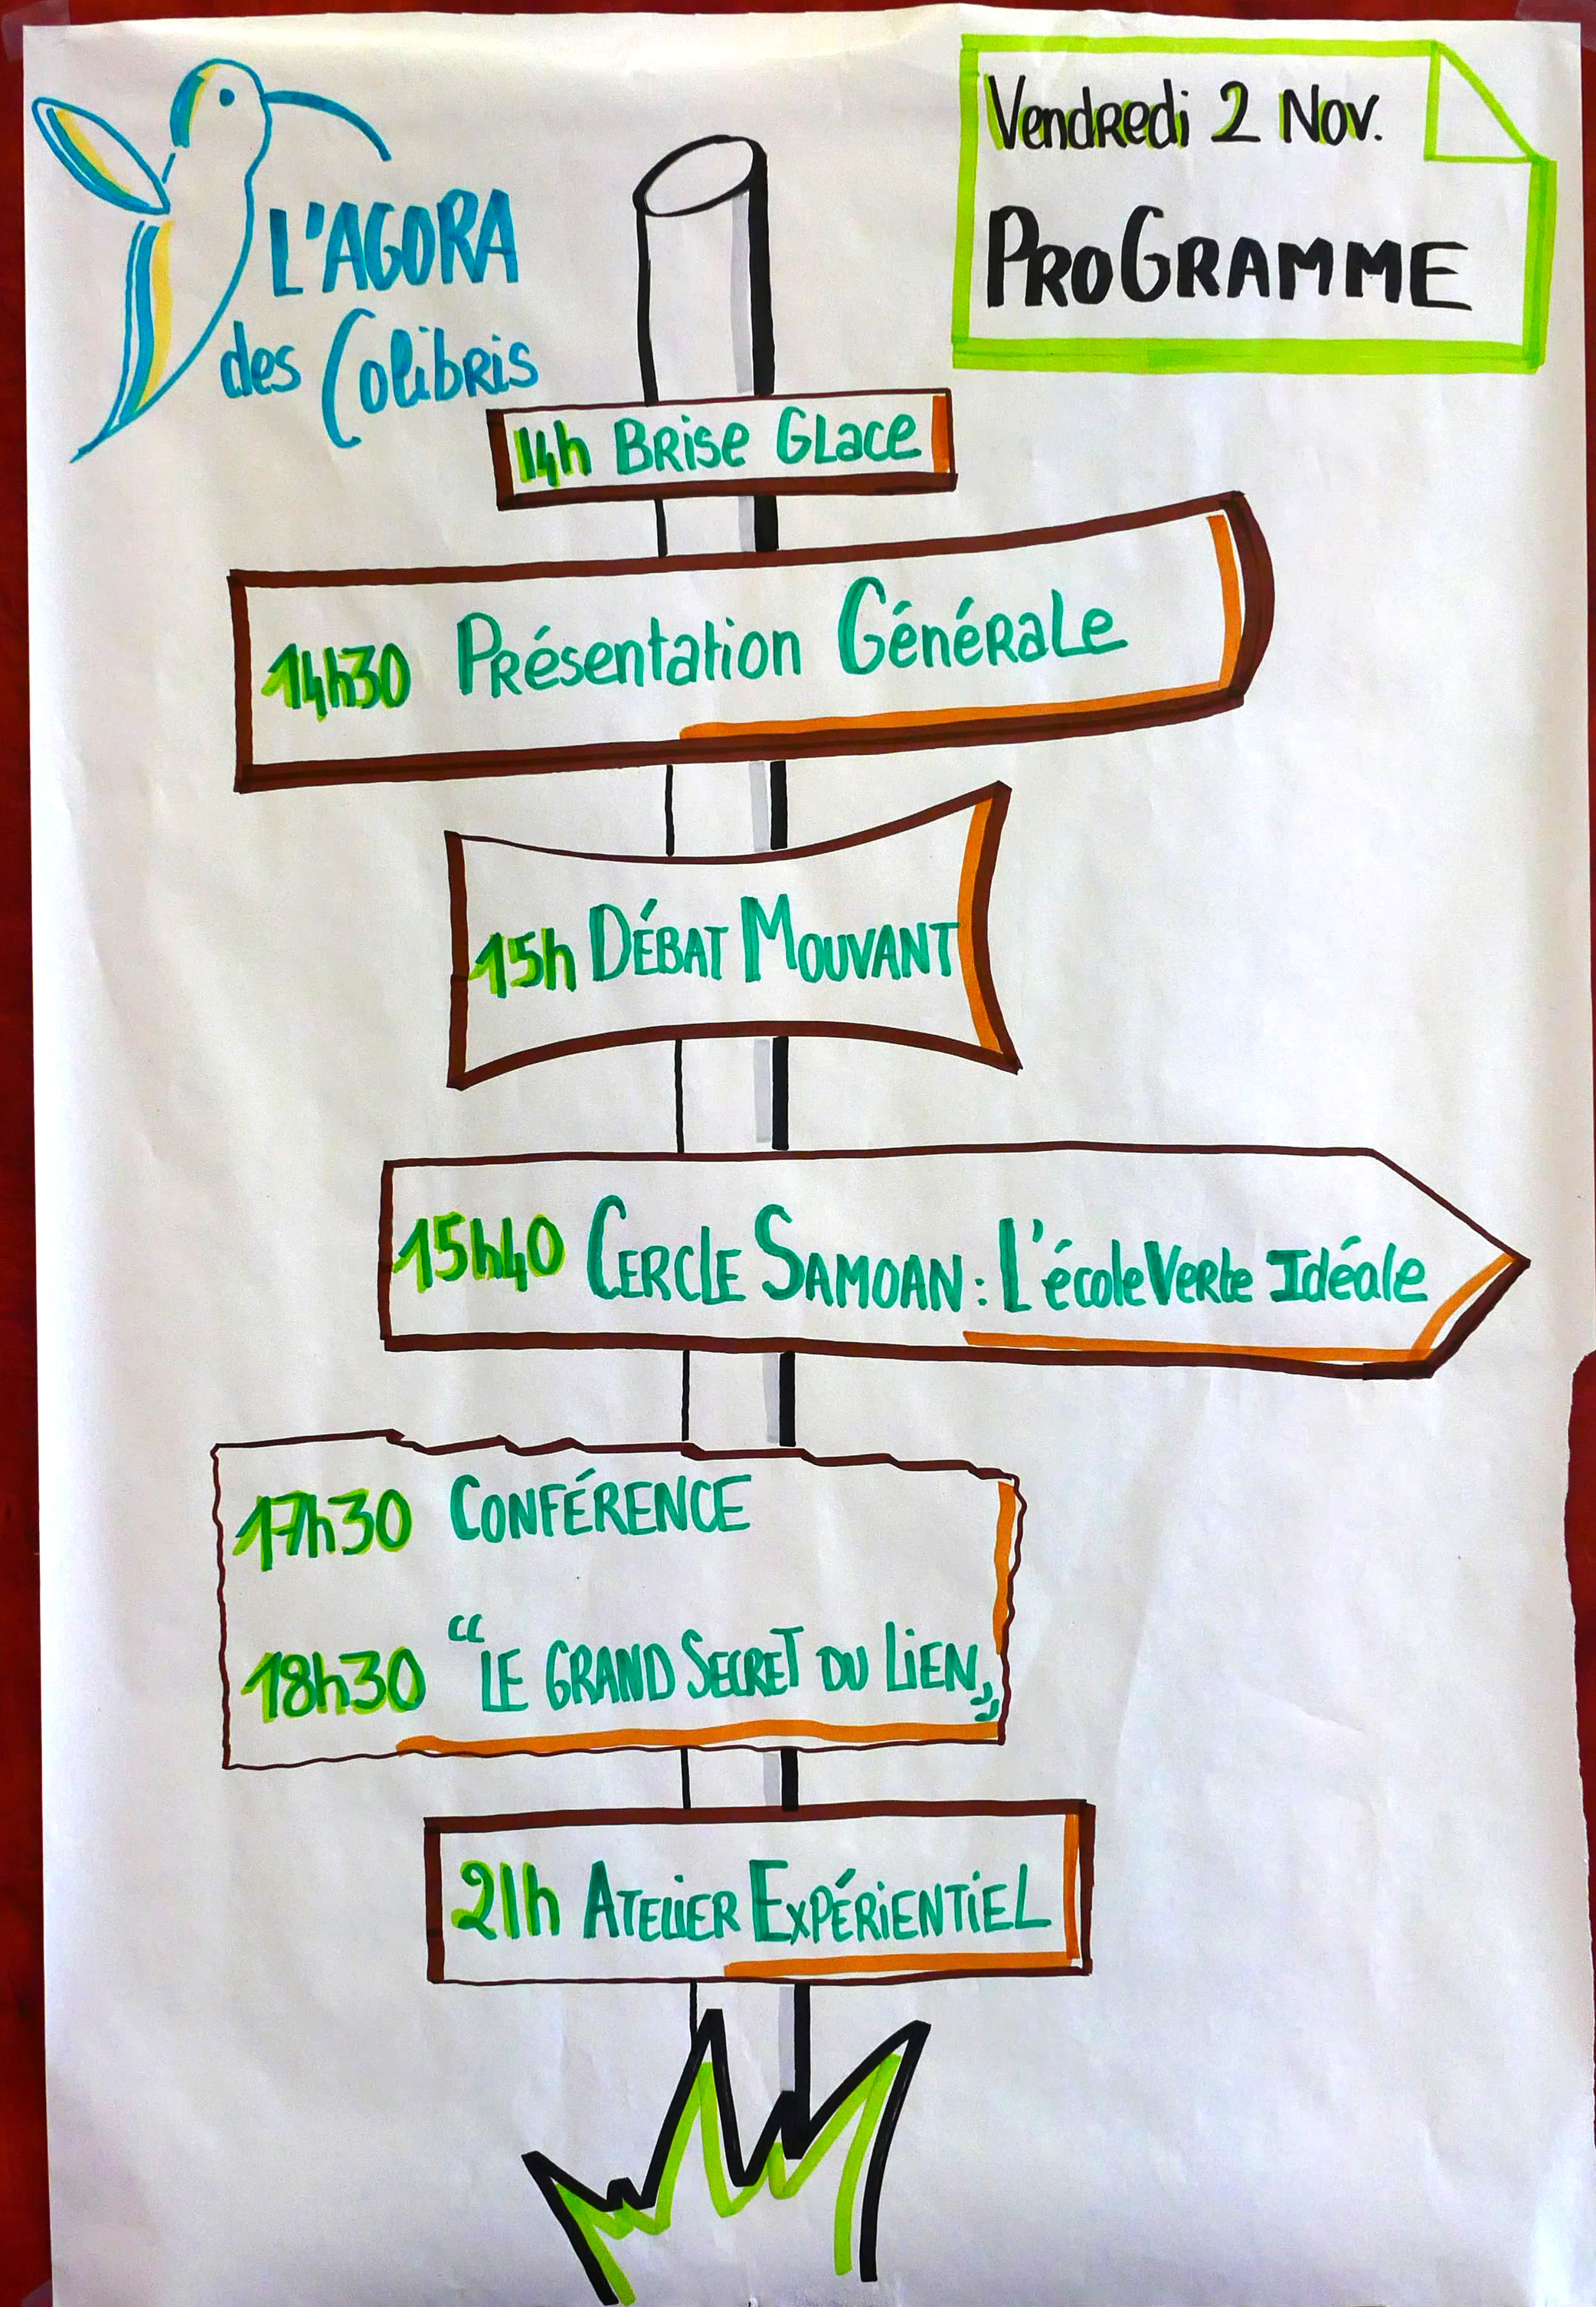 L'AGORA
des Colibris
Vendredi 2 Nov.
PROGRAMME
14h Brise Glace
14h30 Présentation Générale
15h Débat Mouvant
15h40 Cercle Samoan : L'école Verte Idéale
17h30 Conférence
18h30 “Le Grand Secret du Lien”
21h Atelier Expérientiel